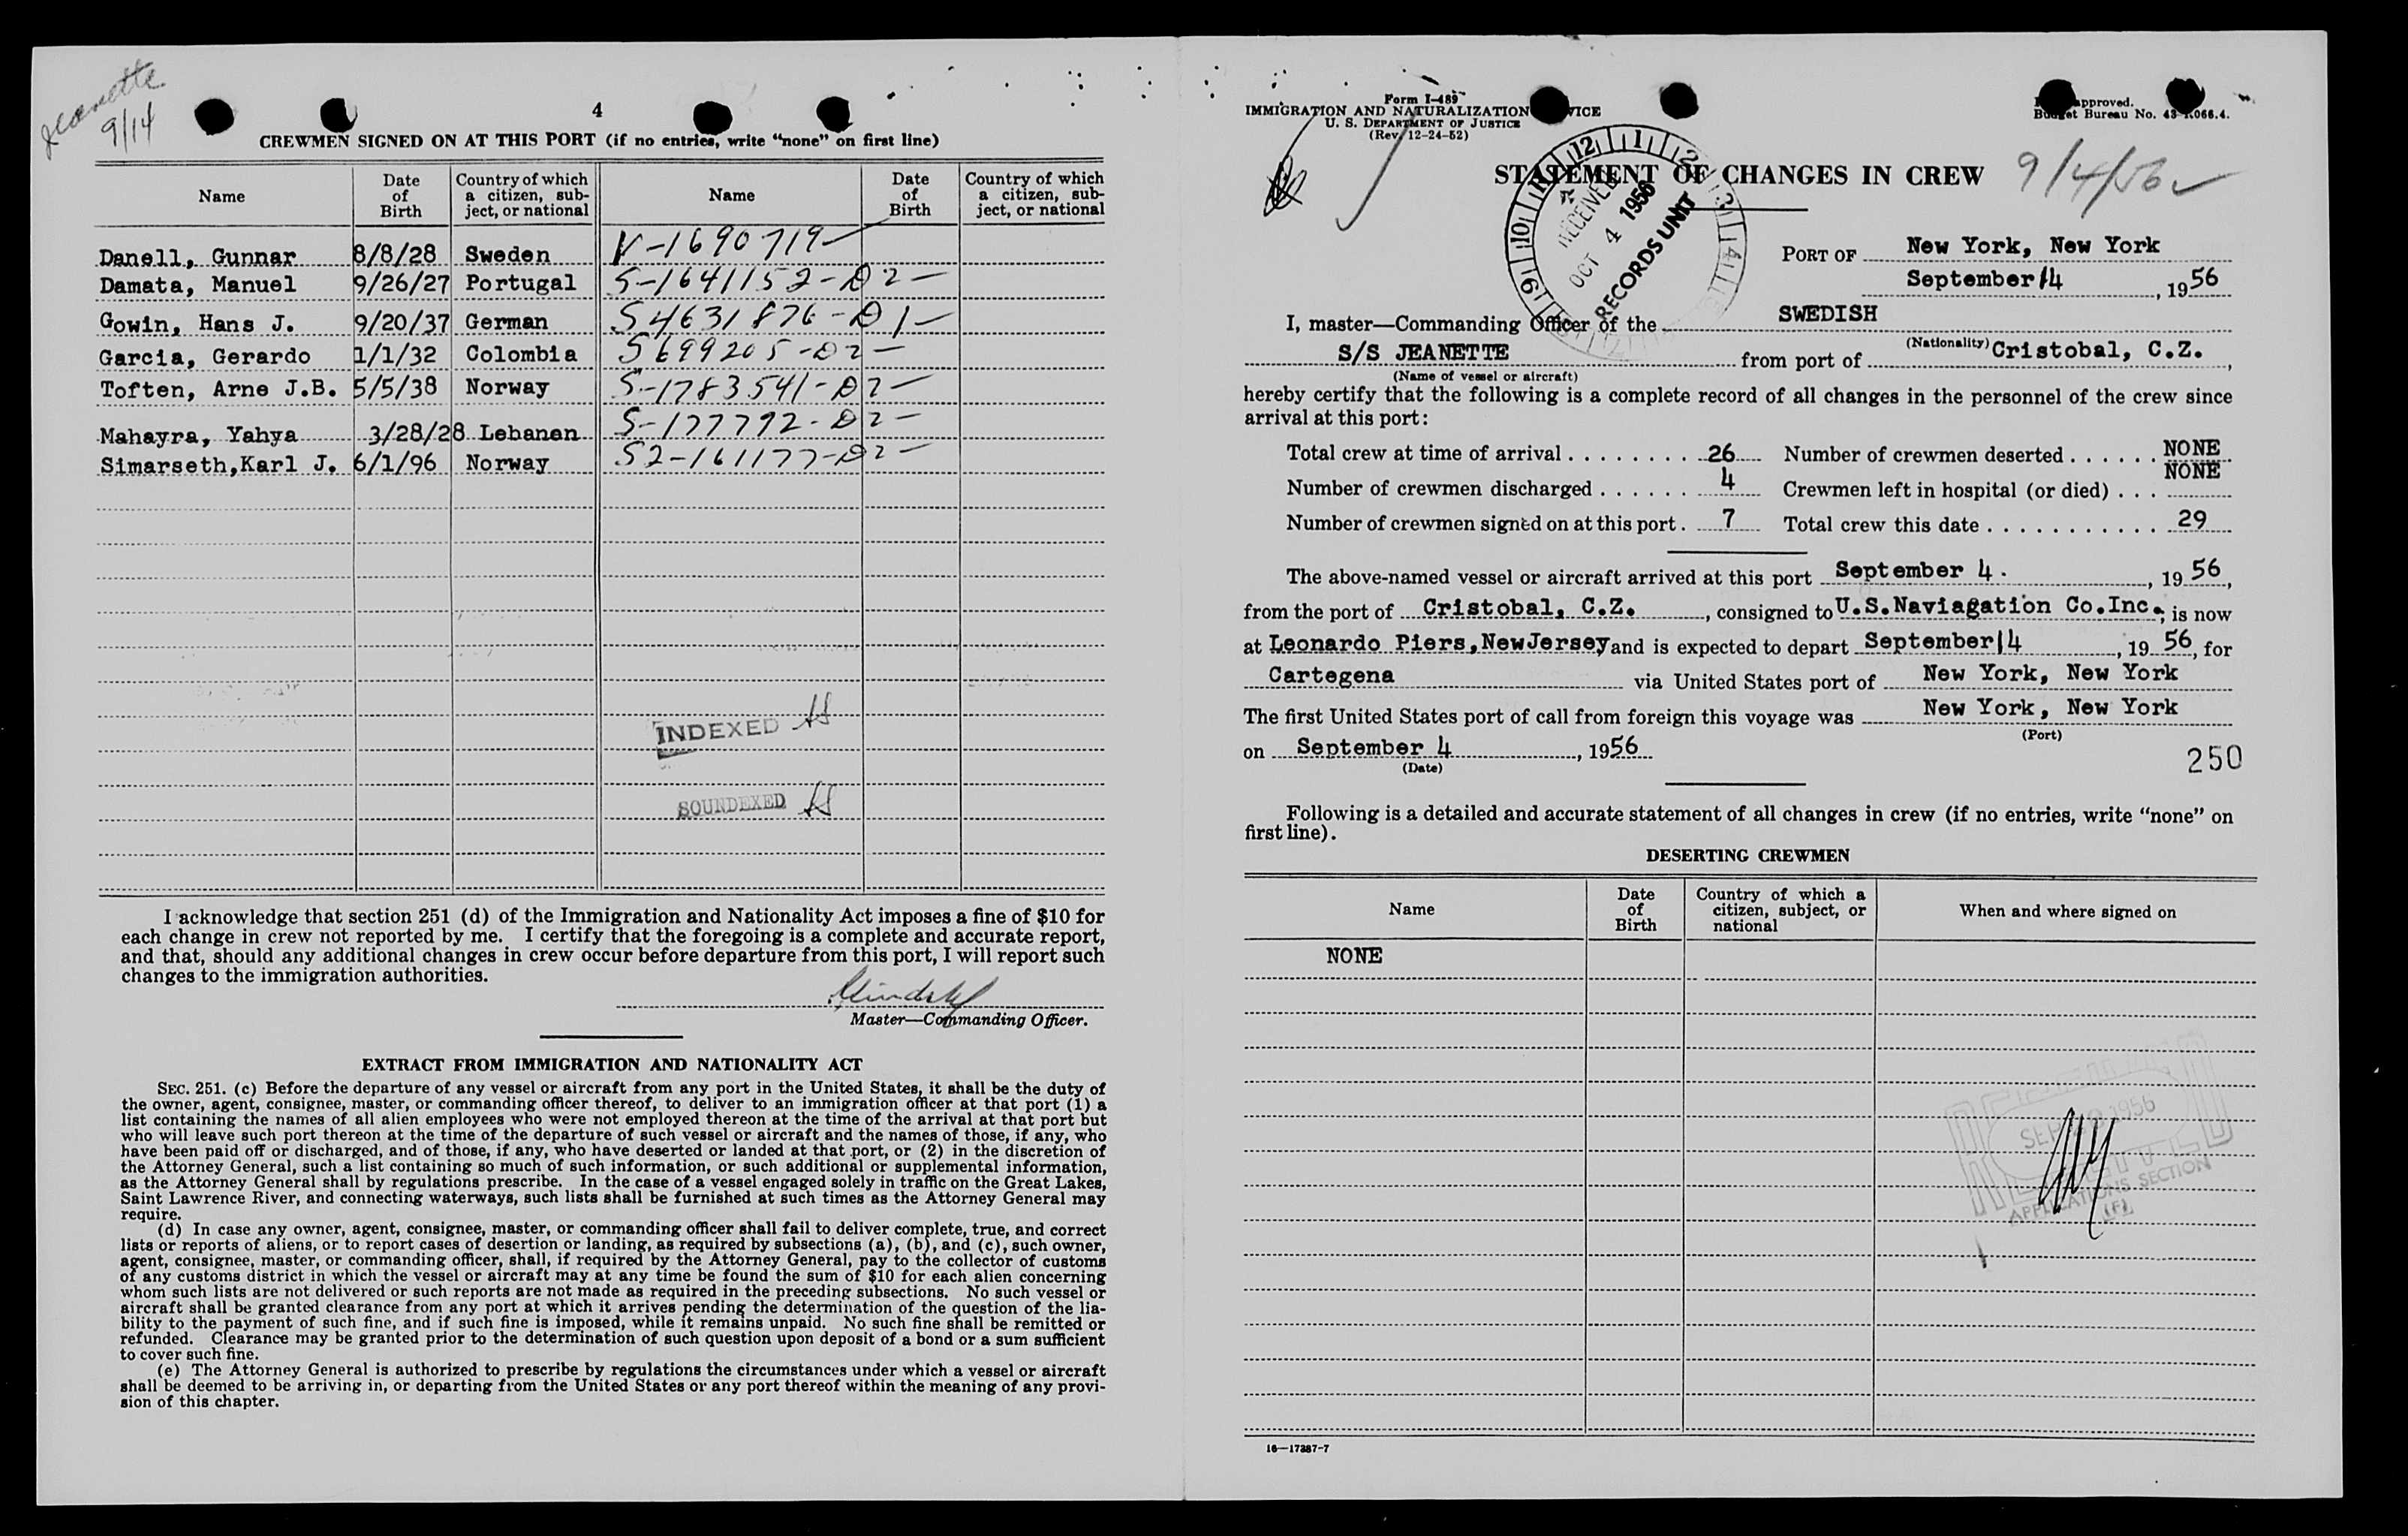 Jeanette
9/14
4
CREWMEN SIGNED ON AT THIS PORT (if no entries, write "none" on first line)
Name Date of Birth Country of which a citizen, subject, or national Name Date of Birth Country of which a citizen, subject, or national
Danell, Gunnar 8/8/28 Sweden V-1690719-
Damata, Manuel 9/26/27 Portugal S-1641152-D2-
Gowin, Hans J. 9/20/37 German S4631876-D1-
Garcia, Gerardo 1/1/32 Colombia S699205-D2-
Toften, Arne J.B. 5/5/38 Norway S-1783541-D2-
Mahayra, Yahya 3/28/28 Lebanen S-177792-D2-
Simarseth,Karl J. 6/1/96 Norway S2-161177-D2-
INDEXED
SOUNDEXED
I acknowledge that section 251 (d) of the Immigration and Nationality Act imposes a fine of $10 for
each change in crew not reported by me. I certify that the foregoing is a complete and accurate report,
and that, should any additional changes in crew occur before departure from this port, I will report such
changes to the immigration authorities.
Master—Commanding Officer.
EXTRACT FROM IMMIGRATION AND NATIONALITY ACT
SEC. 251. (c) Before the departure of any vessel or aircraft from any port in the United States, it shall be the duty of
the owner, agent, consignee, master, or commanding officer thereof, to deliver to an immigration officer at that port (1) a
list containing the names of all alien employees who were not employed thereon at the time of the arrival at that port but
who will leave such port thereon at the time of the departure of such vessel or aircraft and the names of those, if any, who
have been paid off or discharged, and of those, if any, who have deserted or landed at that port, or (2) in the discretion of
the Attorney General, such a list containing so much of such information, or such additional or supplemental information,
as the Attorney General shall by regulations prescribe. In the case of a vessel engaged solely in traffic on the Great Lakes,
Saint Lawrence River, and connecting waterways, such lists shall be furnished at such times as the Attorney General may
require.
(d) In case any owner, agent, consignee, master, or commanding officer shall fail to deliver complete, true, and correct
lists or reports of aliens, or to report cases of desertion or landing, as required by subsections (a), (b), and (c), such owner,
agent, consignee, master, or commanding officer, shall, if required by the Attorney General, pay to the collector of customs
of any customs district in which the vessel or aircraft may at any time be found the sum of $10 for each alien concerning
whom such lists are not delivered or such reports are not made as required in the preceding subsections. No such vessel or
aircraft shall be granted clearance from any port at which it arrives pending the determination of the question of the lia-
bility to the payment of such fine, and if such fine is imposed, while it remains unpaid. No such fine shall be remitted or
refunded. Clearance may be granted prior to the determination of such question upon deposit of a bond or a sum sufficient
to cover such fine.
(e) The Attorney General is authorized to prescribe by regulations the circumstances under which a vessel or aircraft
shall be deemed to be arriving in, or departing from the United States or any port thereof within the meaning of any provi-
sion of this chapter.
Form I-489
IMMIGRATION AND NATURALIZATION
U. S. DEPARTMENT OF JUSTICE
(Rev. 12-24-52)
approved.
Budget Bureau No. 43-R066.4.
STATEMENT OF CHANGES IN CREW
9/4/56
RECEIVED
OCT 4 1956
RECORDS UNIT
PORT OF New York, New York
September 14, 1956
I, master—Commanding Officer of the SWEDISH
(Nationality)
S/S JEANETTE from port of Cristobal, C.Z.,
(Name of vessel or aircraft)
hereby certify that the following is a complete record of all changes in the personnel of the crew since
arrival at this port:
Total crew at time of arrival 26 Number of crewmen deserted NONE
Number of crewmen discharged 4 Crewmen left in hospital (or died) NONE
Number of crewmen signed on at this port 7 Total crew this date 29
The above-named vessel or aircraft arrived at this port September 4., 1956,
from the port of Cristobal, C.Z., consigned to U.S.Naviagation Co.Inc., is now
at Leonardo Piers,NewJersey and is expected to depart September 14, 1956, for
Cartegena via United States port of New York, New York
The first United States port of call from foreign this voyage was New York, New York
(Port)
on September 4, 1956
(Date)
250
Following is a detailed and accurate statement of all changes in crew (if no entries, write "none" on
first line).
DESERTING CREWMEN
Name Date of Birth Country of which a citizen, subject, or national When and where signed on
NONE
1956
APPLICATIONS SECTION
(F)
16—17387-7